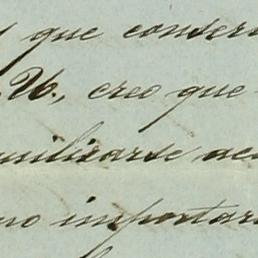 y que conser
U., creo que
milizarse ac
no importar